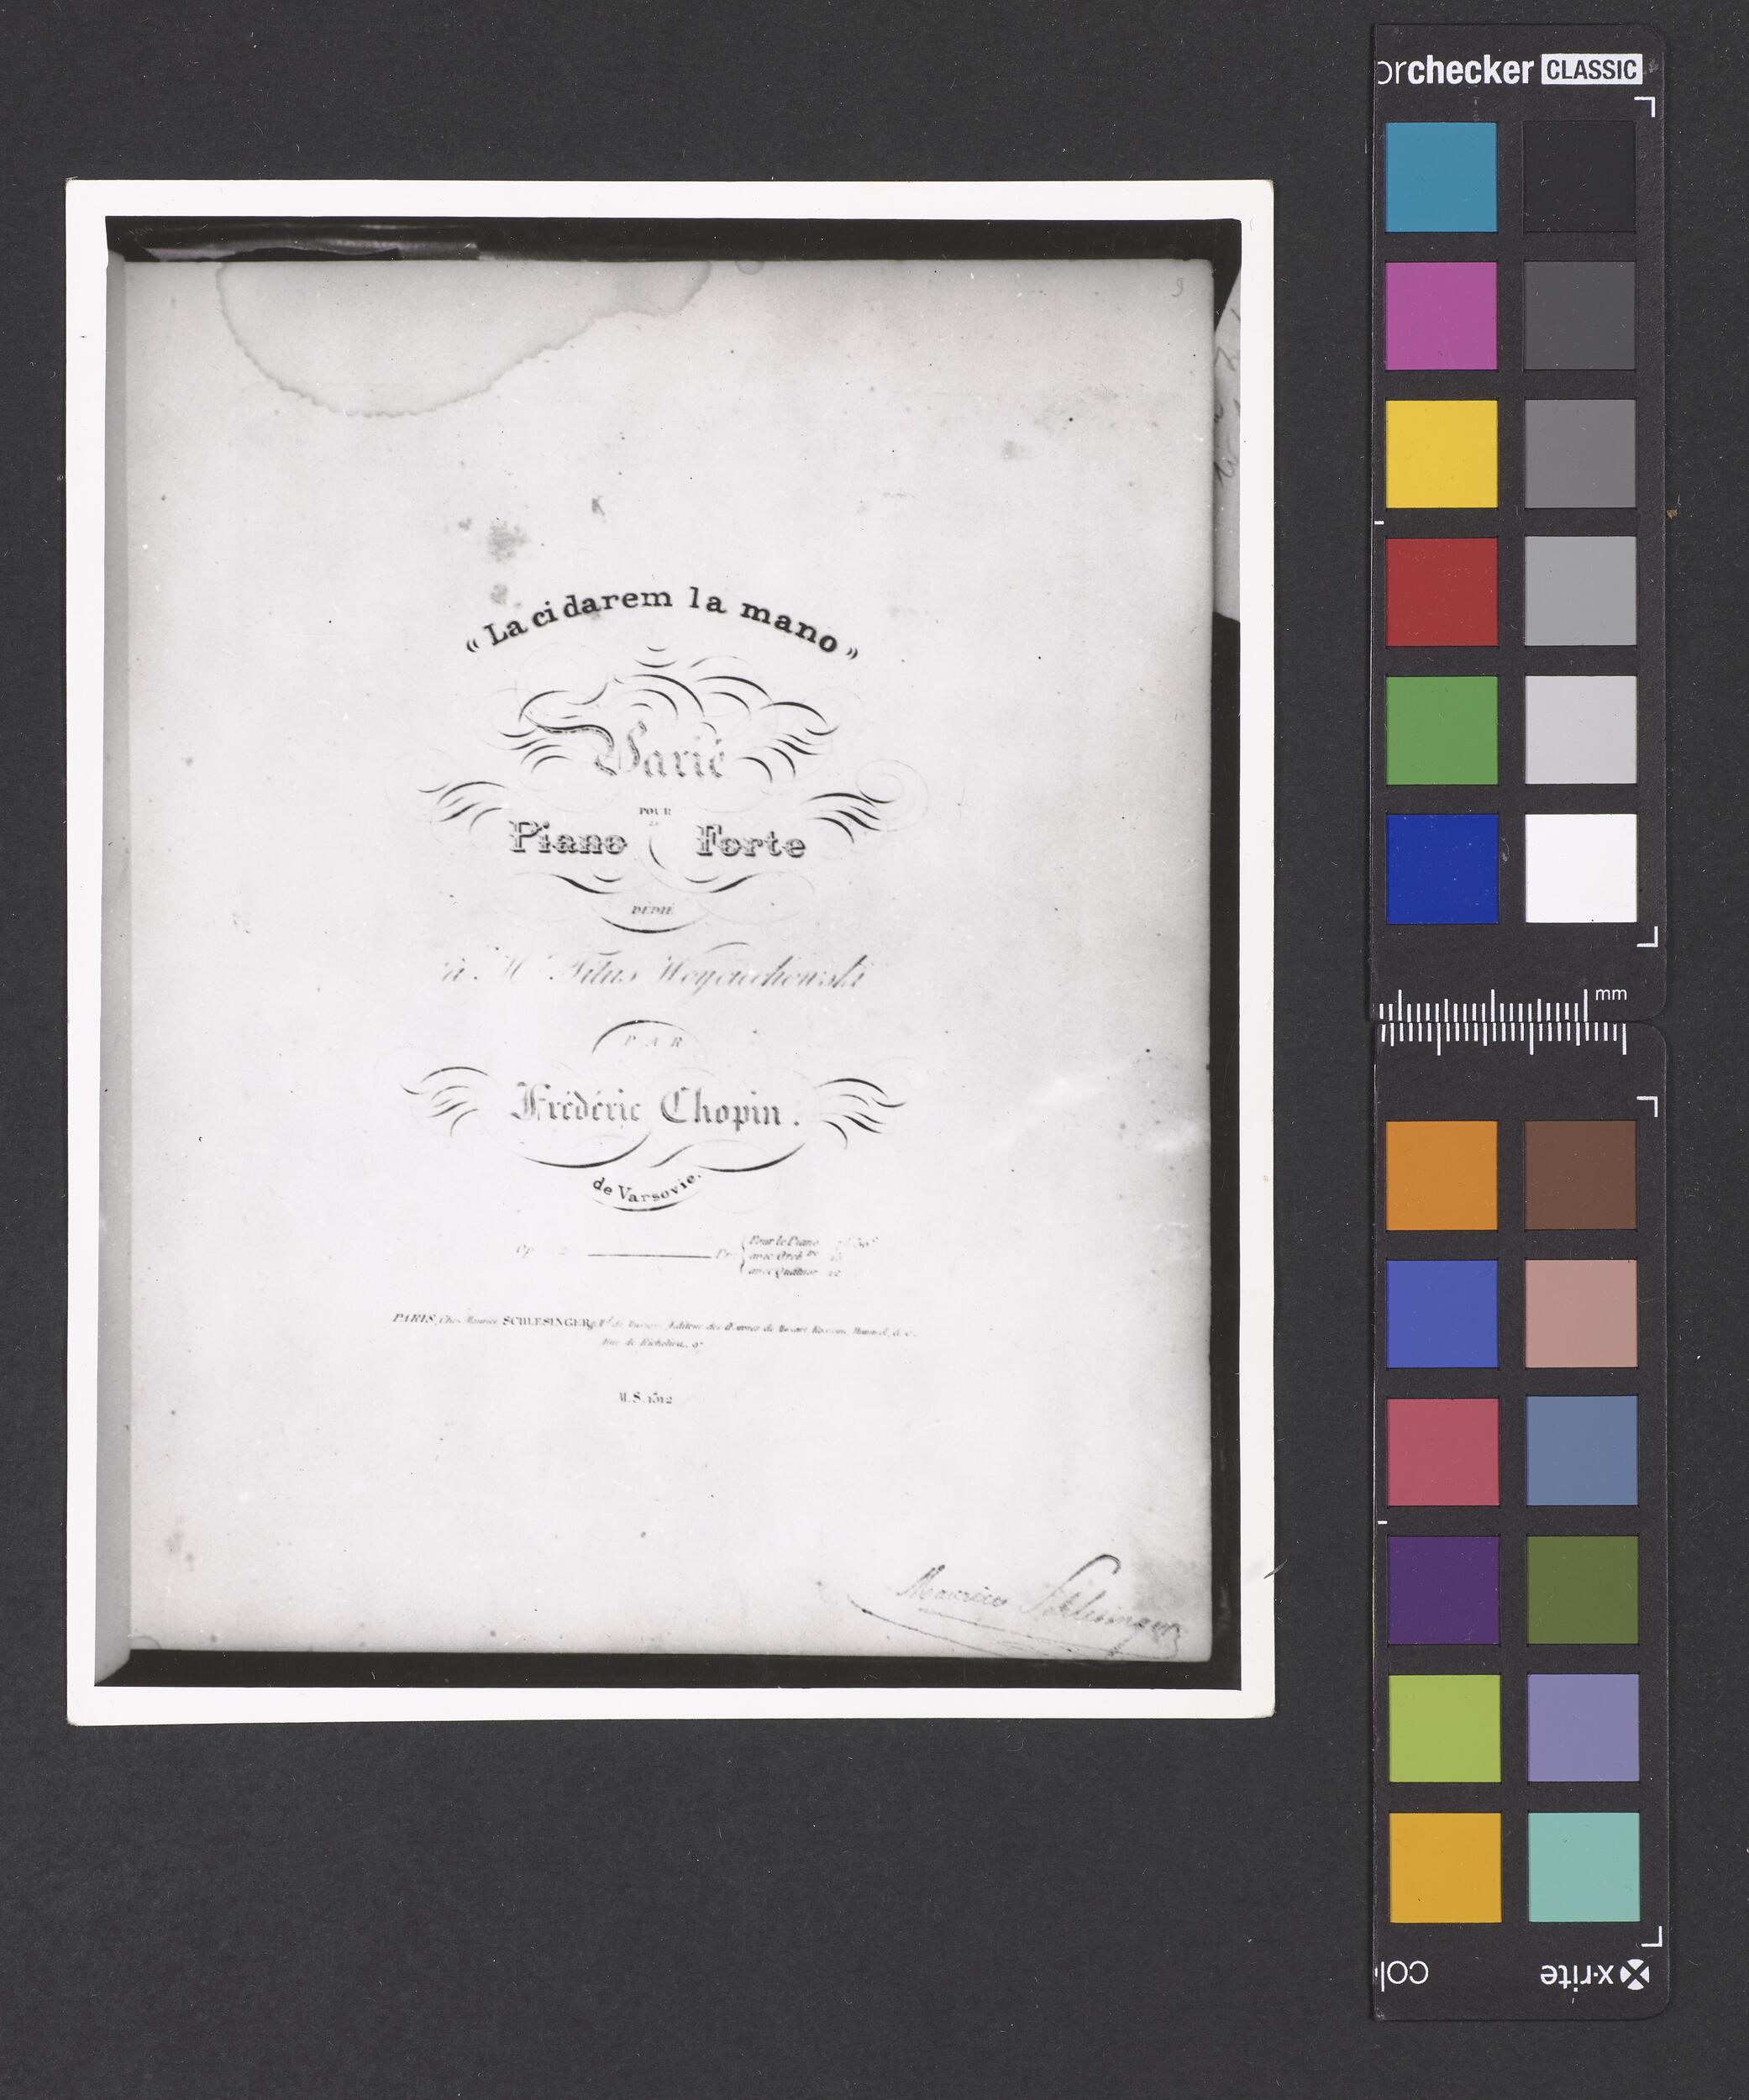 « La ci darem la mano »
Varié
POUR
LE
Piano Forte
DÉDIÉ
à Mr Titus Woyciechowski
PAR
Frédéric Chopin.
de Varsovie.
Op. 2. Pr:
Pour le Piano
avec Orchtre
avec Quatuor 12
PARIS, Chez Maurice SCHLESINGER, Md de Musique, Editeur des Œuvres de Mozart, Rossini, Hummel, &c.
Rue de Richelieu, 97
M.S. 1312
Maurice Schlesinger
orchecker CLASSIC
mm
x-rite
col